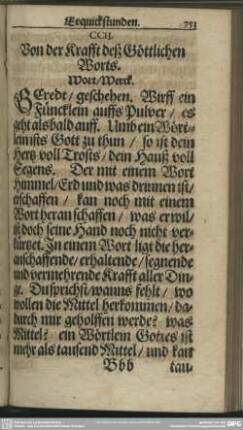 Erquickstunden. 753
CCII.
Von der Krafft deß Göttlichen
Worts.
Wort/Werck.
GEredt/ geschehen. Wirff ein
Füncklein auffs Pulver/ es
geht alsbald auff. Umb ein Wört-
lein ists Gott zu thun/ so ist dein
Hertz voll Trosts/ dein Hauß voll
Segens. Der mit einem Wort
Himmel/ Erd und was drinnen ist/
erschaffen/ kan noch mit einem
Wort heran schaffen/ was er wil/
ist doch seine Hand noch nicht ver-
kürtzet. In einem Wort ligt die her-
anschaffende/ erhaltende/ segnende
und vermehrende Krafft aller Din-
ge. Du sprichst/ wanns fehlt/ wo
wollen die Mittel herkommen/ da-
durch mir geholffen werde? was
Mittel? ein Wörtlein Gottes ist
mehr als tausend Mittel/ und kan
Bbb tau-